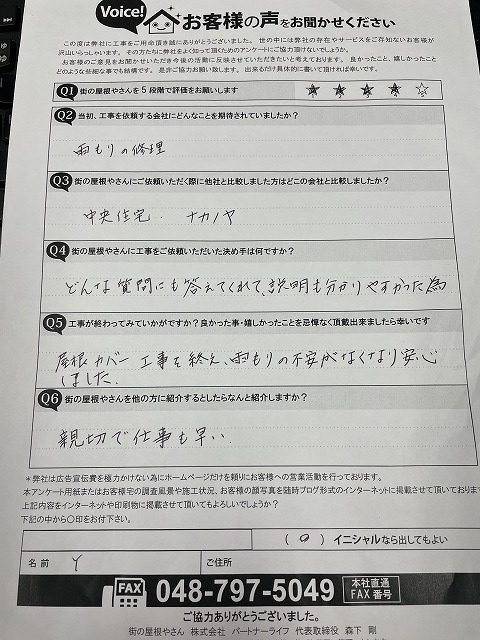 Voice! お客様の声をお聞かせください
この度は弊社に工事をご用命頂き誠にありがとうございました。世の中には弊社の存在やサービスをご存知ないお客様が
沢山いらっしゃいます。その方たちに弊社をよく知って頂くためのアンケートにご協力頂けないでしょうか。
お客様のご意見をお聞かせいただき今後の活動に反映させていただきたいと考えております。良かったこと、嬉しかったこと
どのような些細な事でも結構です。是非ご協力お願い致します。出来るだけ具体的に書いて頂ければ幸いです。
Q1 街の屋根やさんを5段階で評価をお願いします ★ ★ ★ ★ ☆
Q2 当初、工事を依頼する会社にどんなことを期待されていましたか?
雨もりの修理
Q3 街の屋根やさんにご依頼いただく際に他社と比較しました方はどこの会社と比較しましたか?
中央住宅. ナカノヤ
Q4 街の屋根やさんに工事をご依頼いただいた決め手は何ですか?
どんな質問にも答えてくれて、説明も分かりやすかった為
Q5 工事が終わってみていかがですか?良かった事・嬉しかったことを忌憚なく頂戴出来ましたら幸いです
屋根カバー工事を終え、雨もりの不安がなくなり安心
しました.
Q6 街の屋根やさんを他の方に紹介するとしたらなんと紹介しますか?
親切で仕事も早い.
*弊社は広告宣伝費を極力かけない為にホームページだけを頼りにお客様への営業活動を行っております。
本アンケート用紙またはお客様宅の調査風景や施工状況、お客様の顔写真を随時ブログ形式のインターネットに掲載させて頂いております
上記内容をインターネットや印刷物に掲載させて頂いてもよろしいでしょうか?
下記の中から○印をお付下さい。
(○) イニシャルなら出してもよい
名前 Y ご住所
FAX 048-797-5049 本社直通 FAX番号
ご協力ありがとうございました。
街の屋根やさん 株式会社 パートナーライフ 代表取締役 森下 剛